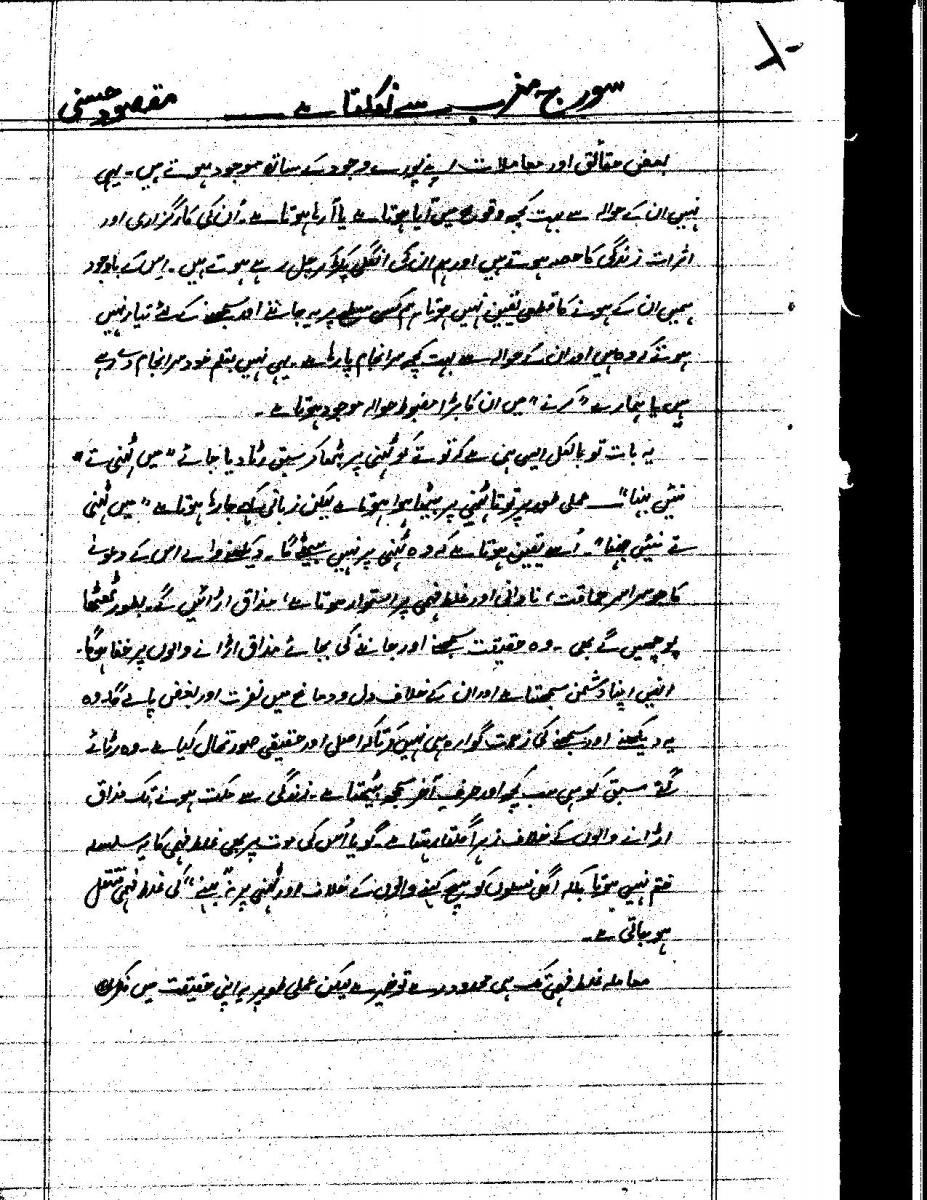 سورج مغرب سے نکلتا ہے ــــ مقصود حسنی
بعض حقائق اور معاملات اپنے پورے وجود کے ساتھ موجود ہوتے ہیں۔ یہی
نہیں ان کے حوالہ سے بہت کچھ وقوع میں آیا ہوتا ہے یا آ رہا ہوتا ہے۔ اُن کی کارگزاری اور
اثرات زندگی کا حصہ ہوتے ہیں اور ہم ان کی انگلی پکڑ کر چل رہے ہوتے ہیں۔ اس کے باوجود
ہمیں ان کے ہونے کا قطعی یقین نہیں ہوتا ہم کسی سطح پر یہ جاننے اور سمجھنے کے لئے تیار نہیں
ہوتے کہ وہ ہیں اور ان کے حوالہ سے بہت کچھ سرانجام پا رہا ہے۔ یہی نہیں ہم خود سرانجام دے رہے
ہیں یا ہمارے "کرنے" میں ان کا بڑا مضبوط حوالہ موجود ہوتا ہے۔
یہ بات تو بالکل ایسی ہی ہے کہ توتے کو ٹہنی پر بٹھا کر سبق رٹا دیا جائے "میں ٹہنی تے"
نئیں بہنا" عملی طور پر توتا ٹہنی پر بیٹھا ہوا ہوتا ہے لیکن زبانی کہے جا رہا ہوتا ہے "میں ٹہنی
تے نئیں بہنا"۔ اُسے یقین ہوتا ہے کہ وہ ٹہنی پر نہیں بیٹھے گا۔ دیکھنے والے اس کے دعوے
کا جو سراسر حماقت، نادانی اور غلط فہمی پر استوار ہوتا ہے، مذاق اڑائیں گے۔ بطور ٹھٹھا
پوچھیں گے بھی۔ وہ حقیقت سمجھنے اور جاننے کی بجائے مذاق اڑانے والوں پر خفا ہوگا۔
انہیں اپنا دشمن سمجھتا ہے اور ان کے خلاف دل و دماغ میں نفرت اور بغض پالے گا۔ وہ
یہ دیکھنے اور سمجھنے کی زحمت گوارہ ہی نہیں کرتا کہ اصل اور حقیقی صورتحال کیا ہے۔ وہ رٹائے
گئے سبق کو ہی سب کچھ اور حرفِ آخر سمجھ بیٹھتا ہے۔ زندگی سے مکت ہونے تک مذاق
اڑانے والوں کے خلاف زہر اگلتا رہتا ہے۔ گویا اُس کی موت پر بھی غلط فہمی کا یہ سلسلہ
ختم نہیں ہوتا بلکہ اگلی نسلوں کو سچ کہنے والوں کے خلاف اور ٹہنی پر نہ بہنے" کی غلط فہمی منتقل
ہو جاتی ہے۔
معاملہ غلط فہمی تک ہی محدود رہے تو خیر ہے لیکن عملی طور پر یہ اپنی حقیقت میں